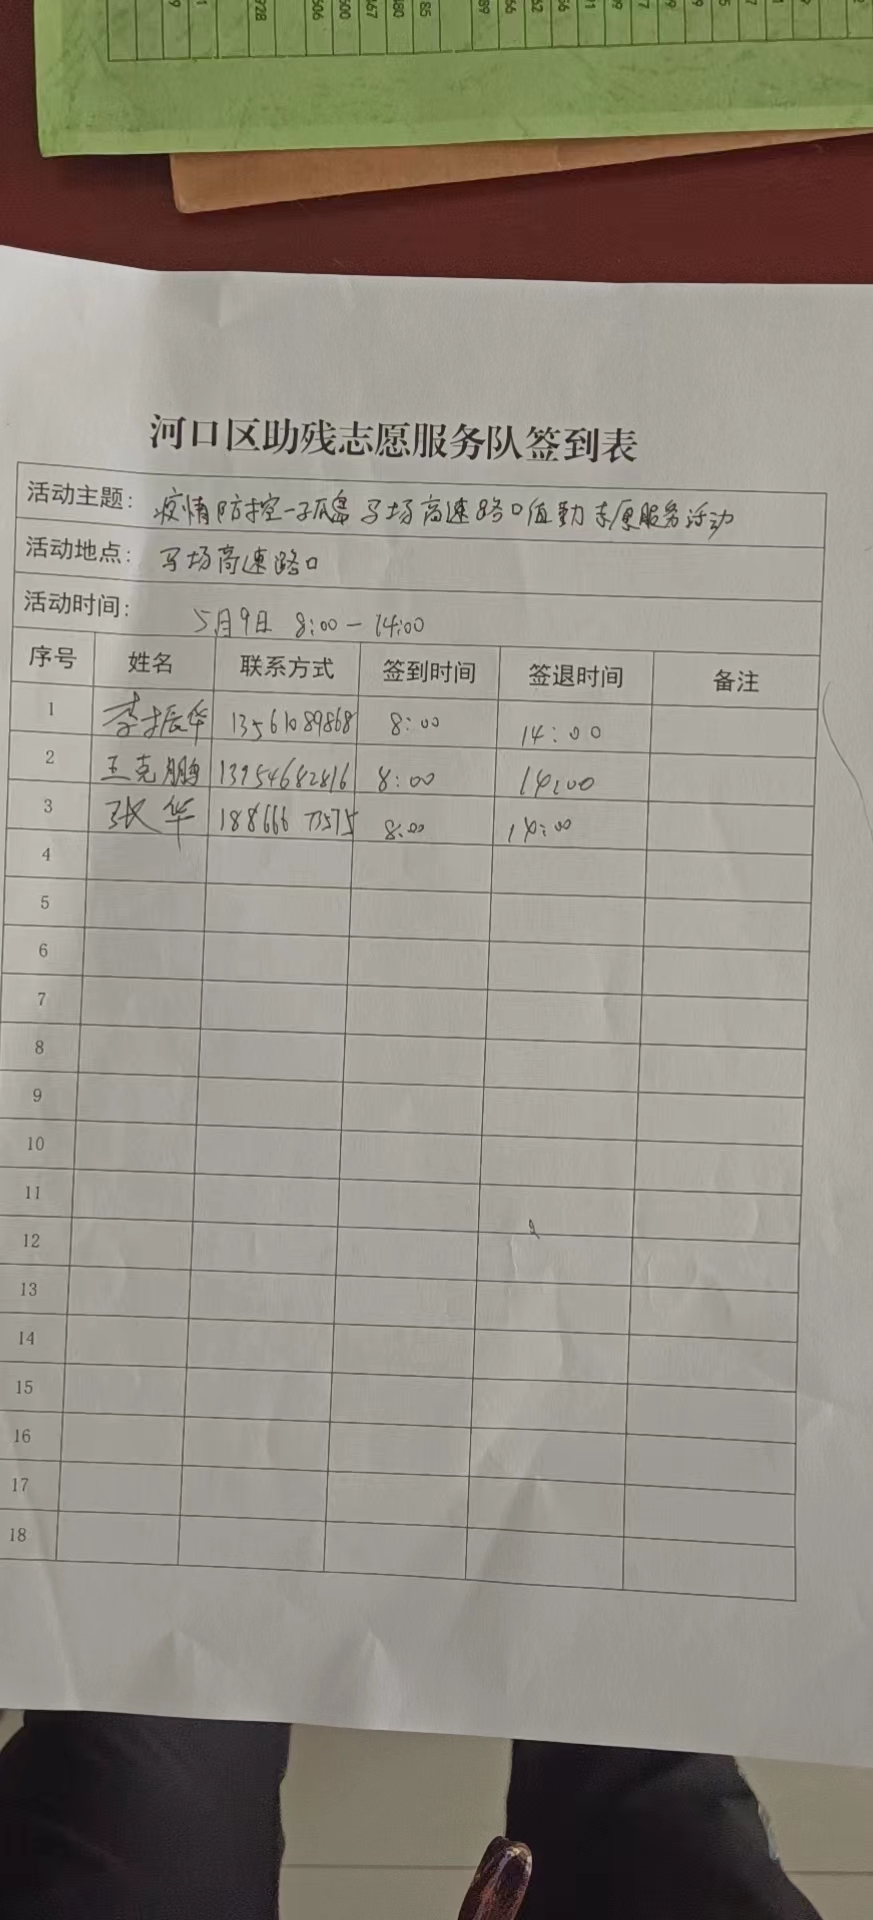 河口区助残志愿服务队签到表
活动主题: 疫情防控一孤岛 马场高速路口值勤志愿服务活动
活动地点: 马场高速路口
活动时间: 5月9日 8:00-14:00
序号 姓名 联系方式 签到时间 签退时间 备注
1 李振华 13561089868 8:00 14:00
2 王克鹏 13954682816 8:00 14:00
3 张华 18866673575 8:00 14:00
4
5
6
7
8
9
10
11
12
13
14
15
16
17
18